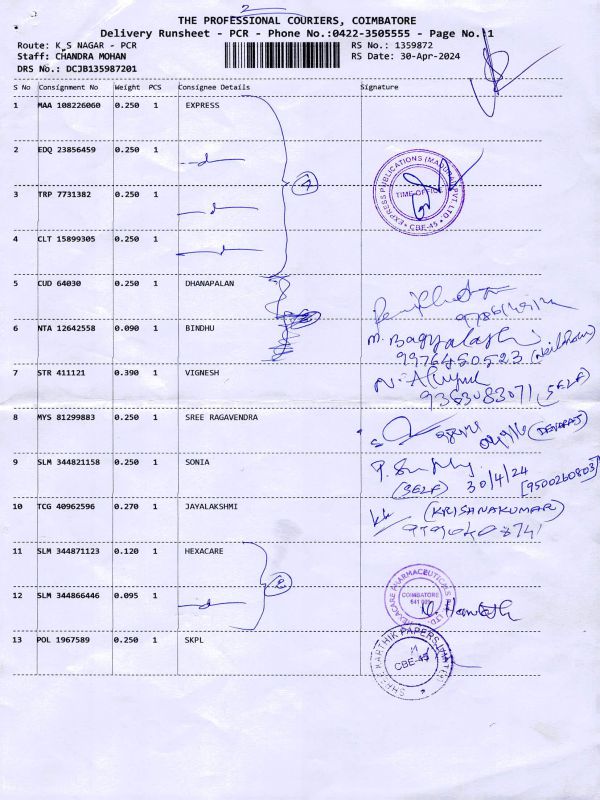 2
THE PROFESSIONAL COURIERS, COIMBATORE
Delivery Runsheet - PCR - Phone No.:0422-3505555 - Page No.:1
Route: K.S NAGAR - PCR RS No.: 1359872
Staff: CHANDRA MOHAN RS Date: 30-Apr-2024
DRS No.: DCJB135987201
S No Consignment No Weight PCS Consignee Details Signature
1 MAA 108226060 0.250 1 EXPRESS
2 EDQ 23856459 0.250 1
EXPRESS PUBLICATIONS (MADURAI) PVT LTD
TIME OFFICE
CBE-45
3 TRP 7731382 0.250 1
4 CLT 15899305 0.250 1
5 CUD 64030 0.250 1 DHANAPALAN
6 NTA 12642558 0.090 1 BINDHU M. Bagyalakshmi
9976450523
7 STR 411121 0.390 1 VIGNESH
9363083071 (SELF)
8 MYS 81299883 0.250 1 SREE RAGAVENDRA (DEVARAJ)
9 SLM 344821158 0.250 1 SONIA
(SELF) 30/4/24 [9500260803]
10 TCG 40962596 0.270 1 JAYALAKSHMI kk (KRISHNAKUMAR)
11 SLM 344871123 0.120 1 HEXACARE
HEXACARE PHARMACEUTICALS
COIMBATORE
12 SLM 344866446 0.095 1
13 POL 1967589 0.250 1 SKPL
SHREE KARTHIK PAPERS LIMITED
CBE-45